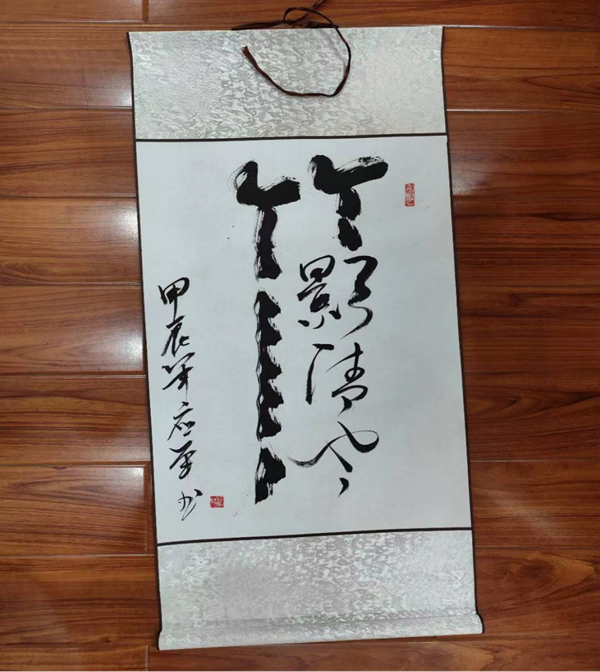 竹影清风
甲辰年应书